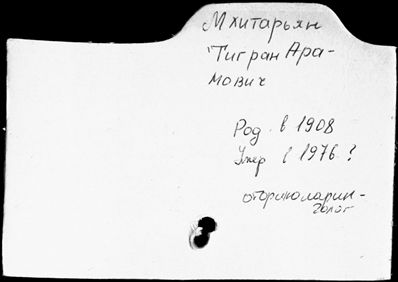 Мхитарьян
Тигран Ара-
мович
Род. в 1908
Умер в 1976.?
оториноларин-
голог